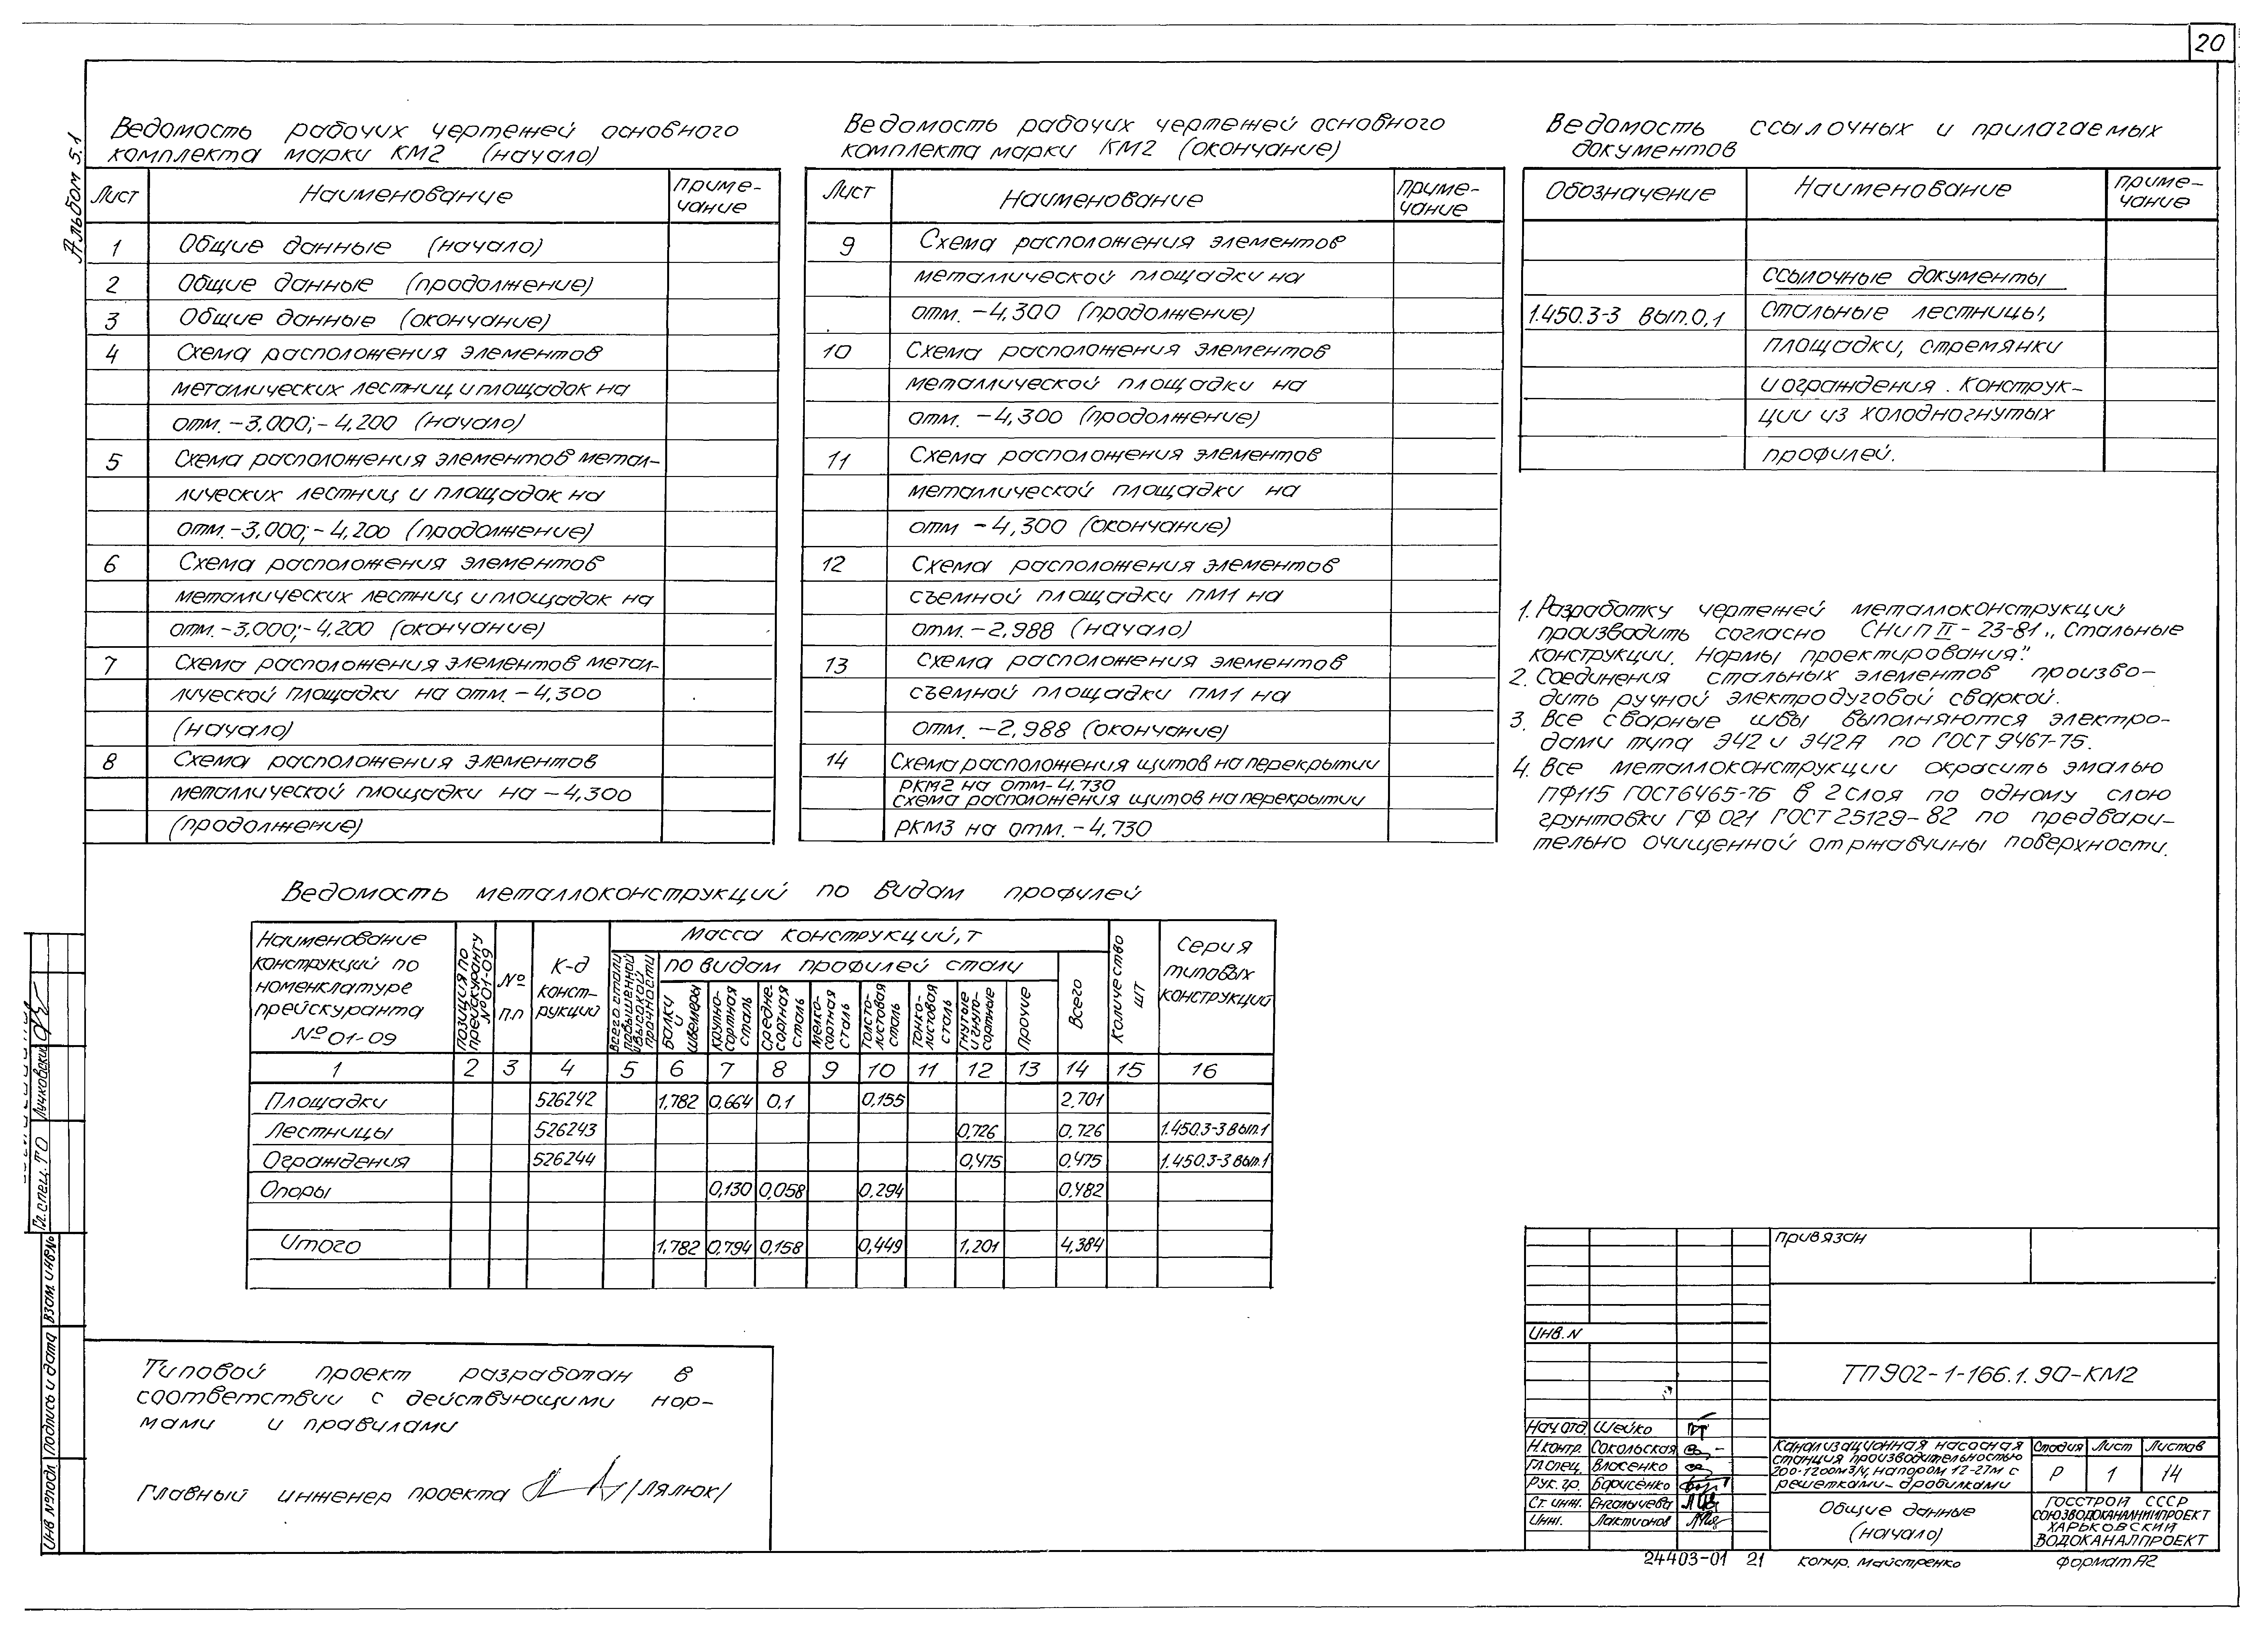 20
Альбом 5.1
Ведомость рабочих чертежей основного
комплекта марки КМ2 (начало)
Лист Наименование Приме-
чание
1 Общие данные (начало)
2 Общие данные (продолжение)
3 Общие данные (окончание)
4 Схема расположения элементов
металлических лестниц и площадок на
отм. -3,000; -4,200 (начало)
5 Схема расположения элементов метал-
лических лестниц и площадок на
отм. -3,000; -4,200 (продолжение)
6 Схема расположения элементов
металлических лестниц и площадок на
отм. -3,000; -4,200 (окончание)
7 Схема расположения элементов метал-
лической площадки на отм. -4,300
(начало)
8 Схема расположения элементов
металлической площадки на -4,300
(продолжение)
Ведомость рабочих чертежей основного
комплекта марки КМ2 (окончание)
Лист Наименование Приме-
чание
9 Схема расположения элементов
металлической площадки на
отм. -4,300 (продолжение)
10 Схема расположения элементов
металлической площадки на
отм. -4,300 (продолжение)
11 Схема расположения элементов
металлической площадки на
отм -4,300 (окончание)
12 Схема расположения элементов
съемной площадки ПМ1 на
отм. -2,988 (начало)
13 Схема расположения элементов
съемной площадки ПМ1 на
отм. -2,988 (окончание)
14 Схема расположения щитов на перекрытии
РКМ2 на отм-4.730
Схема расположения щитов на перекрытии
РКМ3 на отм. -4,730
Ведомость ссылочных и прилагаемых
документов
Обозначение Наименование Приме-
чание
Ссылочные документы
1.450.3-3 вып.0,1 Стальные лестницы,
площадки, стремянки
и ограждения. Конструк-
ции из холодногнутых
профилей.
1. Разработку чертежей металлоконструкций
производить согласно СНиП II-23-81 „Стальные
конструкции. Нормы проектирования".
2. Соединения стальных элементов произво-
дить ручной электродуговой сваркой.
3. Все сварные швы выполняются электро-
дами типа Э42 и Э42А по ГОСТ 9467-75.
4. Все металлоконструкции окрасить эмалью
ПФ115 ГОСТ6465-76 в 2 слоя по одному слою
грунтовки ГФ 021 ГОСТ 25129-82 по предвари-
тельно очищенной от ржавчины поверхности.
Ведомость металлоконструкций по видам профилей
Наименование
конструкций по
номенклатуре
прейскуранта
№ 01-09
Позиция по
прейскуранту
№01-09
№
п.п
К-д
конст-
рукций
Масса конструкций, т
Всего стали
повышенной
и высокой
прочности
по видам профилей стали
Балки
и
швеллеры
Крупно-
сортная
сталь
Средне-
сортная
сталь
Мелко-
сортная
сталь
Толсто-
листовая
сталь
Тонко-
листовая
сталь
Гнутые
и гнуто-
сортные
Прочие
Всего
Количество
шт
Серия
типовых
конструкций
1 2 3 4 5 6 7 8 9 10 11 12 13 14 15 16
Площадки 526242 1,782 0,664 0,1 0,155 2,701
Лестницы 526243 0,726 0,726 1.450.3-3 вып.1
Ограждения 526244 0,475 0,475 1.450.3-3 вып.1
Опоры 0,130 0,058 0,294 0,482
Итого 1,782 0,794 0,158 0,449 1,201 4,384
Типовой проект разработан в
соответствии с действующими нор-
мами и правилами
Главный инженер проекта /Лялюк/
Гл. спец. ТО Лучковский
Инв №подл Подпись и дата Взам. инв№
Привязан
Инв. N
ТП902-1-166.1.90-КМ2
Нач отд. Шейко
Н.контр. Сокольская
Гл спец. Власенко
Рук. гр. Борисенко
Ст. инж. Енгалычева
Инж. Лактионов
Канализационная насосная
станция производительностью
200-1200м3/ч, напором 12-27м с
решетками-дробилками
Стадия Лист Листов
Р 1 14
Общие данные
(начало)
ГОССТРОЙ СССР
СОЮЗВОДОКАНАЛНИИПРОЕКТ
ХАРЬКОВСКИЙ
ВОДОКАНАЛПРОЕКТ
24403-01 21 копир. Майстренко формат А2